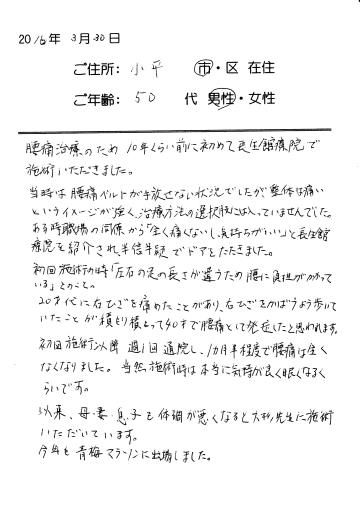 2016年 3月30日
ご住所: 小平 市・区 在住
ご年齢: 50 代 男性・女性
腰痛治療のため 10年くらい前に初めて長生館療院で
施術いただきました。
当時は腰痛ベルトが手放せない状況でしたが、整体は痛い
というイメージが強く、治療方法の選択肢には入っていませんでした。
ある時職場の同僚から「全く痛くないし、気持ちがいい」と長生館
療院を紹介され、半信半疑でドアをたたきました。
初回施術の時「左右の足の長さが違うため腰に負担がかかって
いる」とのこと。
20才代に右ひざを痛めたことがあり、右ひざをかばうよう歩いて
いたことが積もり積もって40才で腰痛として発症したと思われます。
初回施術以降 週1回通院し、1カ月半程度で腰痛は全く
なくなりました。当然、施術時は本当に気持が良く眠くなるく
らいです。
以来、母・妻・息子も体調が悪くなると大杉先生に施術
いただいています。
今年も青梅マラソンに出場しました。